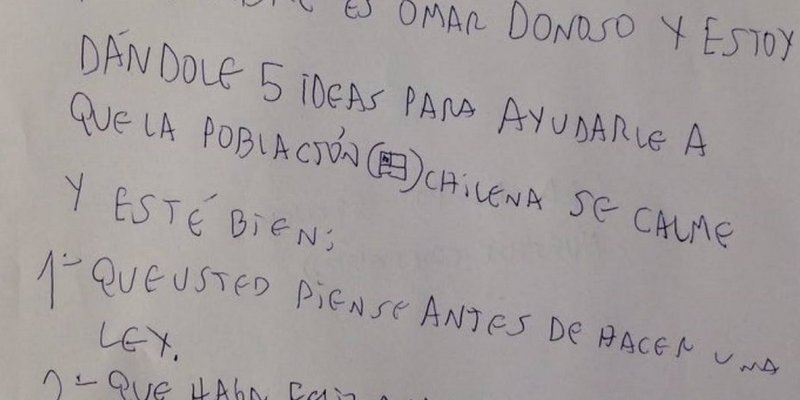 ES OMAR DONOSO Y ESTOY
DÁNDOLE 5 IDEAS PARA AYUDARLE A
QUE LA POBLACIÓN ( ) CHILENA SE CALME
Y ESTÉ BIEN;
1- QUE USTED PIENSE ANTES DE HACER UNA
LEY.
2- QUE HAYA